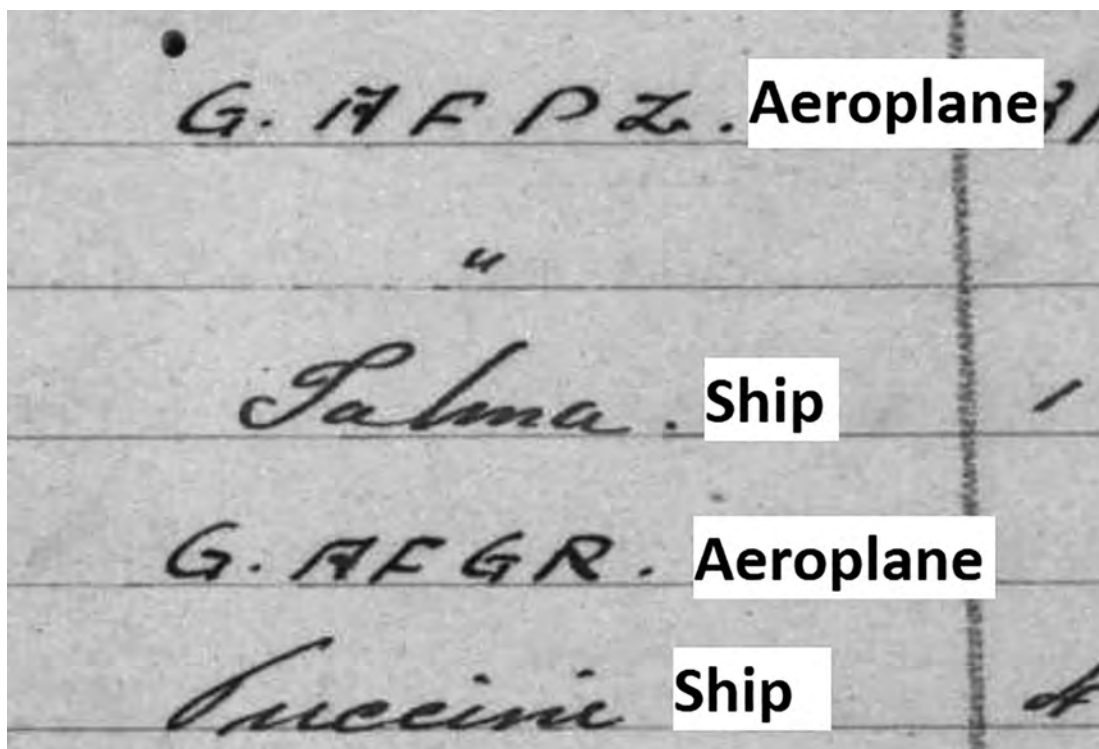 G. A F P Z. Aeroplane
"
Palma. Ship
G. A F G R. Aeroplane
Puccini Ship